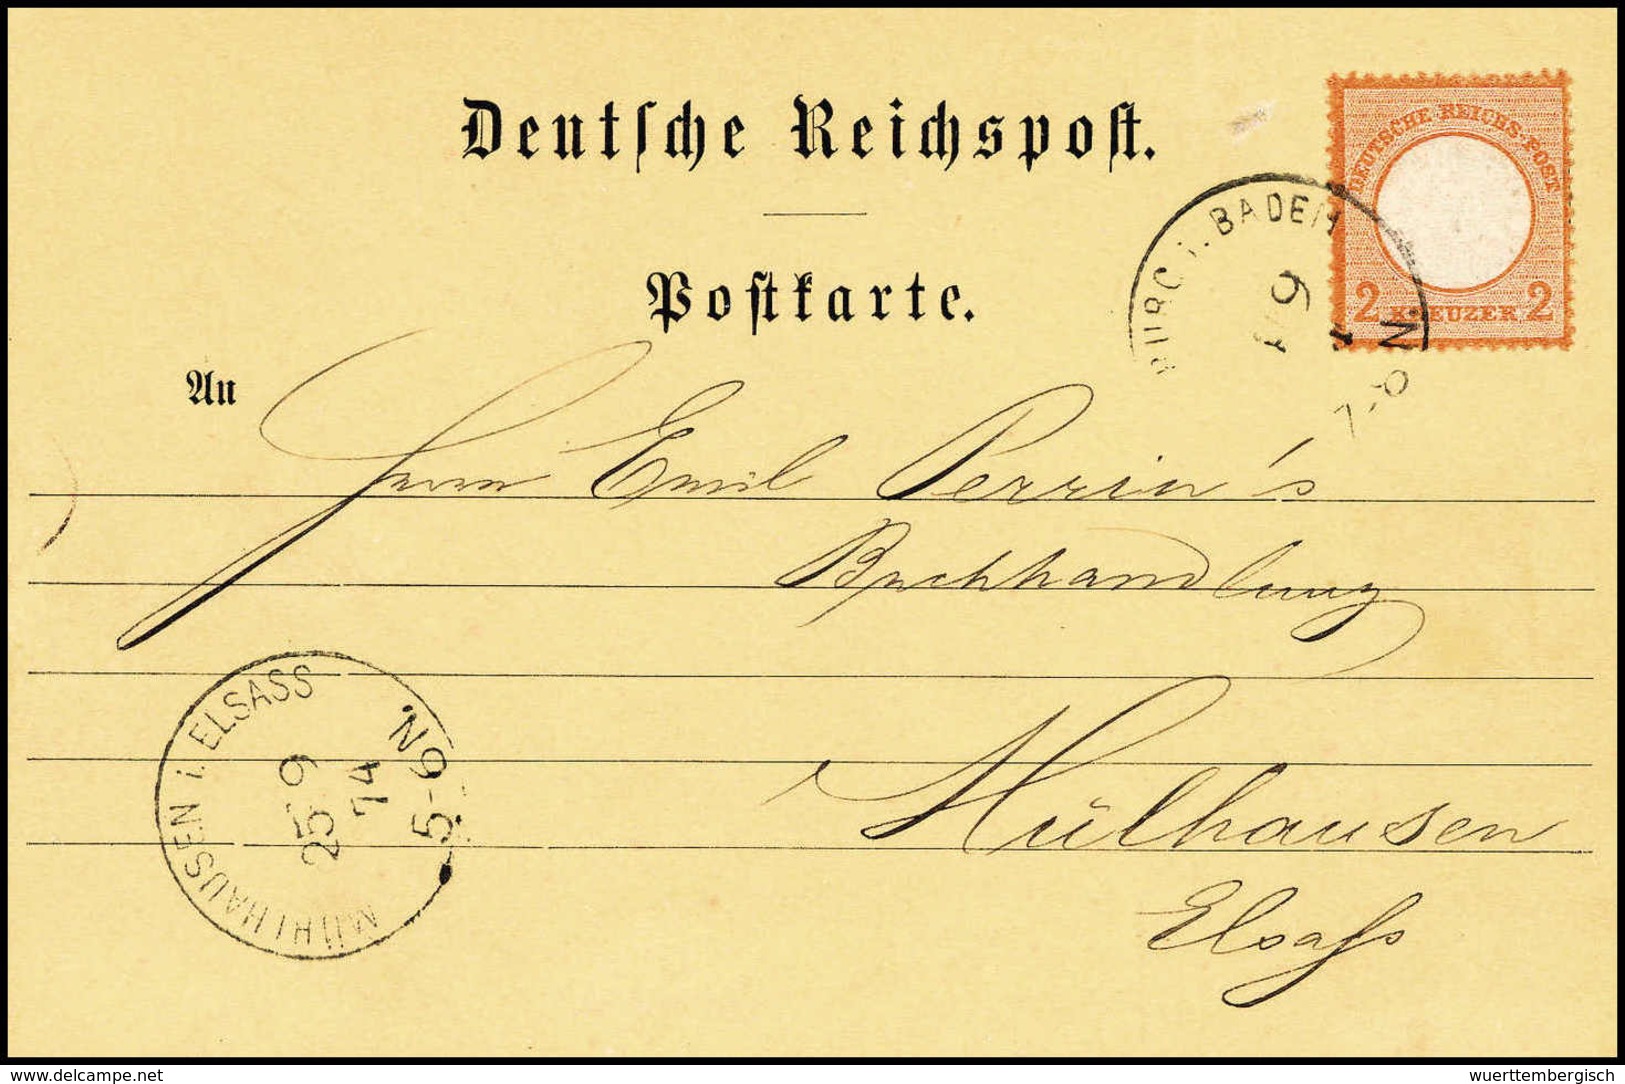 Deutſche Reichspoſt.
DEUTSCHE REICHS-POST
2 KREUZER 2
i. BADEN
9
7-8 N.
Poſtkarte.
An
Herrn Emil Perrin's
Buchhandlung
Mülhausen
Elsaſs
MÜHLHAUSEN i. ELSASS
25 9
74
5-6 N.
www.delcampe.net
wuerttembergisch